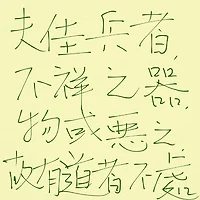 夫佳兵者,
不祥之器,
物或恶之,
故有道者不處